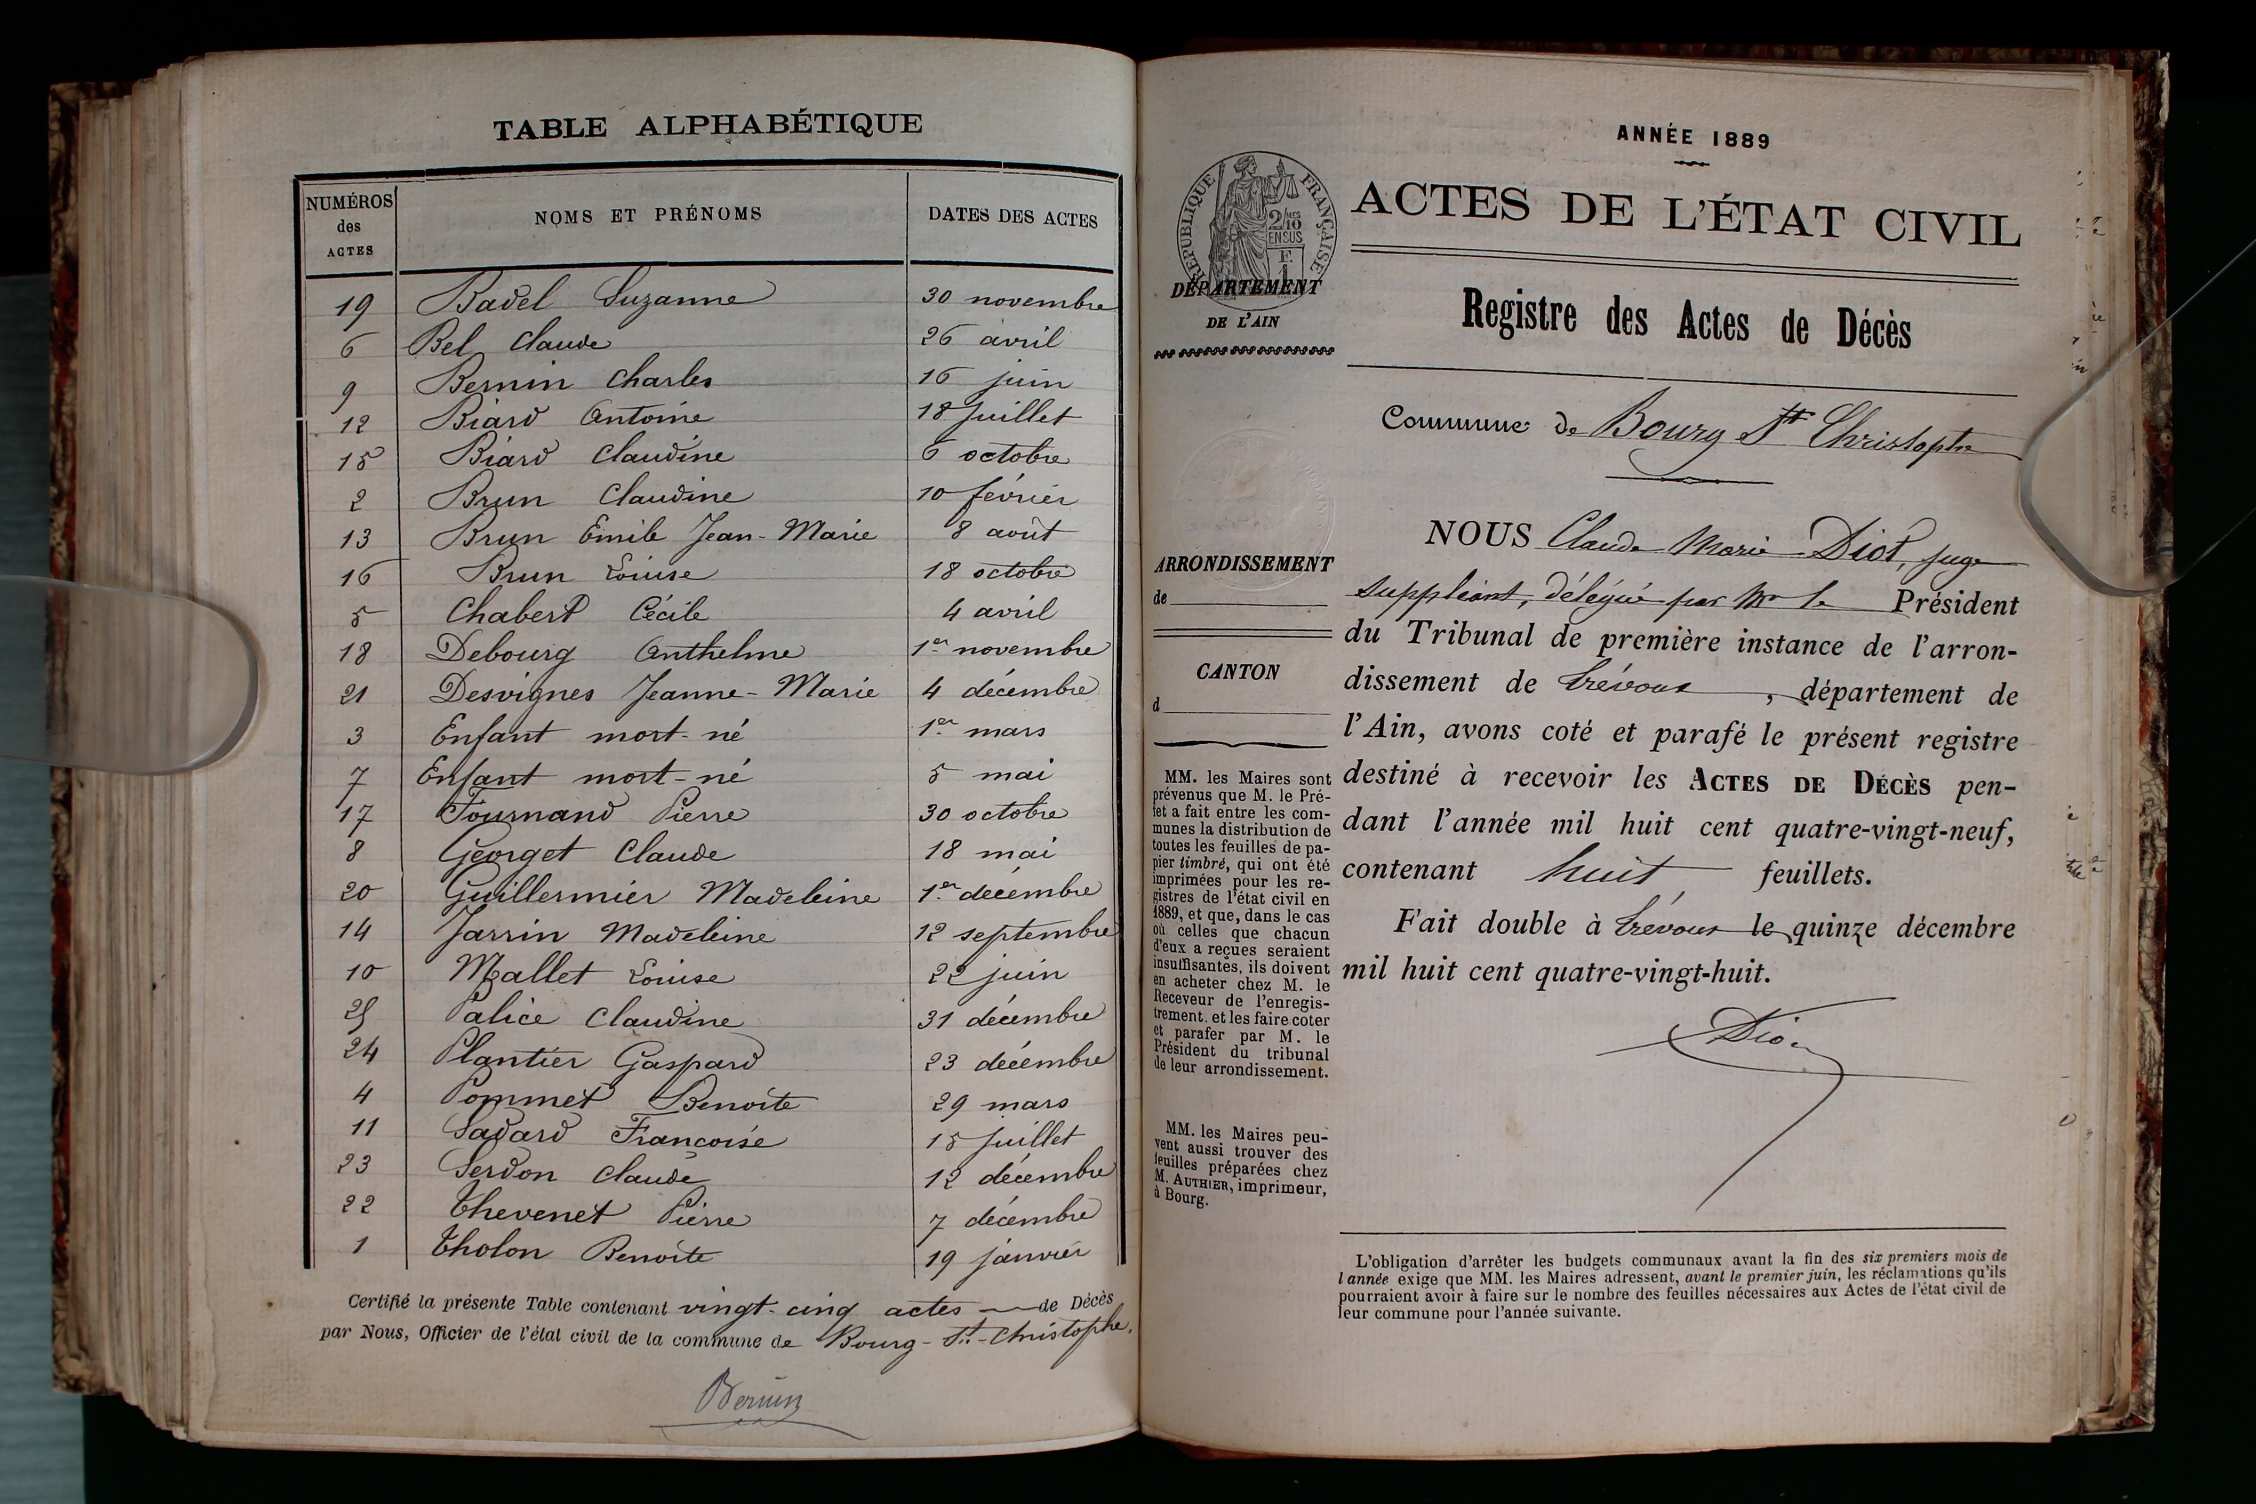 TABLE ALPHABÉTIQUE
NUMÉROS des ACTES NOMS ET PRÉNOMS DATES DES ACTES
19 Badel Suzanne 30 novembre
6 Bel Claude 26 avril
9 Bernin Charles 16 juin
12 Biard Antoine 18 Juillet
15 Biard Claudine 6 octobre
2 Brun Claudine 10 février
13 Brun Emile Jean-Marie 8 août
16 Brun Louise 18 octobre
5 Chabert Cécile 4 avril
18 Debourg Anthelme 1er novembre
21 Desvignes Jeanne-Marie 4 décembre
3 Enfant mort-né 1er mars
7 Enfant mort-né 5 mai
17 Fournand Pierre 30 octobre
8 Georget Claude 18 mai
20 Guillermier Madeleine 1er décembre
14 Jarrin Madeleine 12 septembre
10 Mallet Louise 22 juin
25 Palice Claudine 31 décembre
24 Plantier Gaspard 23 décembre
4 Pommet Benoite 29 mars
11 Sadard Françoise 15 Juillet
23 Serdon Claude 12 décembre
22 Thevenet Pierre 7 décembre
1 Tholon Benoite 19 janvier
Certifié la présente Table contenant vingt-cinq actes de Décès
par Nous, Officier de l'état civil de la commune de Bourg-St-Christophe.
Bernin
ANNÉE 1889
RÉPUBLIQUE FRANÇAISE
2/10
EN SUS
F.
1
ACTES DE L'ÉTAT CIVIL
DÉPARTEMENT
DE L'AIN
Registre des Actes de Décès
Commune de Bourg St Christophe
ARRONDISSEMENT
de
CANTON
d
MM. les Maires sont
prévenus que M. le Pré-
fet a fait entre les com-
munes la distribution de
toutes les feuilles de pa-
pier timbré, qui ont été
imprimées pour les re-
gistres de l'état civil en
1889, et que, dans le cas
où celles que chacun
d'eux a reçues seraient
insuffisantes, ils doivent
en acheter chez M. le
Receveur de l'enregis-
trement, et les faire coter
et parafer par M. le
Président du tribunal
de leur arrondissement.
MM. les Maires peu-
vent aussi trouver des
feuilles préparées chez
M. AUTHIER, imprimeur,
à Bourg.
NOUS Claude Marie Diot, juge
suppléant, délégué par Mr le Président
du Tribunal de première instance de l'arron-
dissement de Trévoux, département de
l'Ain, avons coté et parafé le présent registre
destiné à recevoir les ACTES DE DÉCÈS pen-
dant l'année mil huit cent quatre-vingt-neuf,
contenant huit feuillets.
Fait double à Trévoux le quinze décembre
mil huit cent quatre-vingt-huit.
Diot
L'obligation d'arrêter les budgets communaux avant la fin des six premiers mois de
l'année exige que MM. les Maires adressent, avant le premier juin, les réclamations qu'ils
pourraient avoir à faire sur le nombre des feuilles nécessaires aux Actes de l'état civil de
leur commune pour l'année suivante.